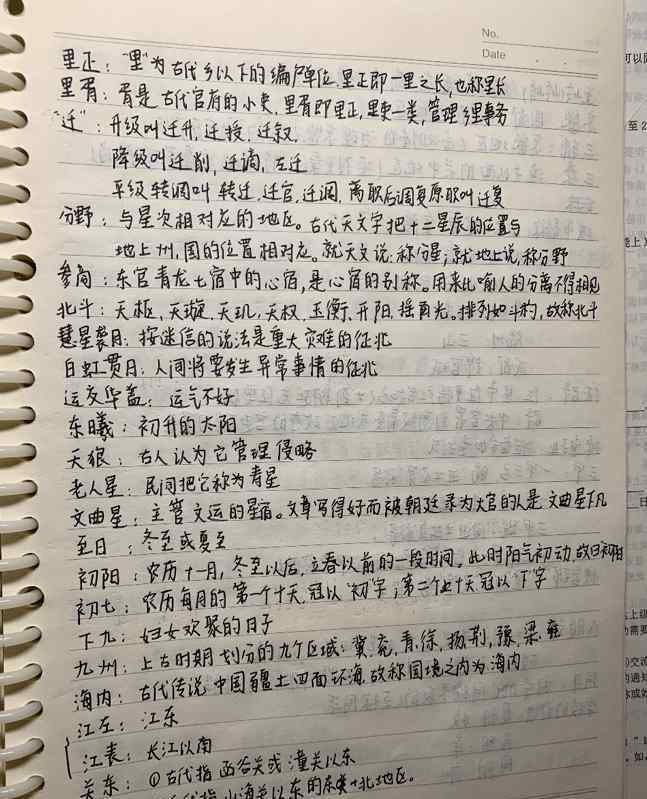 No.
Date
里正："里"为古代乡以下的编户单位,里正即一里之长,也称里长
里胥：胥是古代官府的小吏,里胥即里正,里吏一类,管理乡里事务
"迁"：升级叫迁升,迁授,迁叙,
降级叫迁削,迁谪,左迁
平级转调叫转迁,迁官,迁调,离职后调复原职叫迁复
分野：与星次相对应的地区。古代天文学把十二星辰的位置与
地上州,国的位置相对应。就天文说,称分星;就地上说,称分野
参商：东官青龙七宿中的心宿,是心宿的别称。用来比喻人的分离不得相见
北斗：天枢,天璇,天玑,天权,玉衡,开阳,摇光。排列如斗杓,故称北斗
彗星袭月：按迷信的说法是重大灾难的征兆
白虹贯日：人间将要发生异常事情的征兆
运交华盖：运气不好
东曦：初升的太阳
天狼：古人认为它管理侵略
老人星：民间把它称为寿星
文曲星：主管文运的星宿。文章写得好而被朝廷录为大官的人是文曲星下凡
至日：冬至或夏至
初阳：农历十一月,冬至以后,立春以前的一段时间,此时阳气初动,故曰初阳
初七：农历每月的第一个十天,冠以"初"字;第二个十天冠以"下"字
下九：妇女欢聚的日子
九州：上古时期划分的九个区域:冀,兖,青,徐,扬,荆,豫,梁,雍
海内：古代传说中国疆土四面环海,故称国境之内为海内
江左：江东
江表：长江以南
关东：①古代指函谷关或潼关以东
代指山海关以东的东北地区。